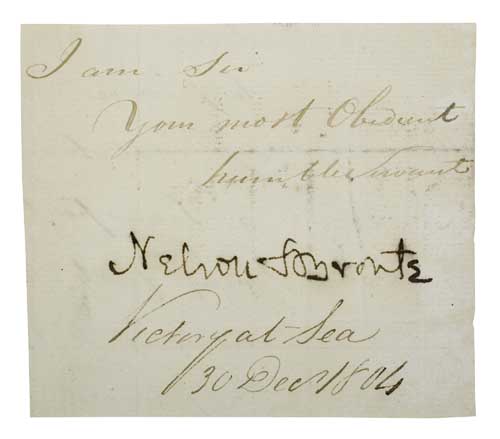 I am Sir
Your most Obedient
humble Servant
Nelson & Bronte
Victory at Sea
30 Decr 1804